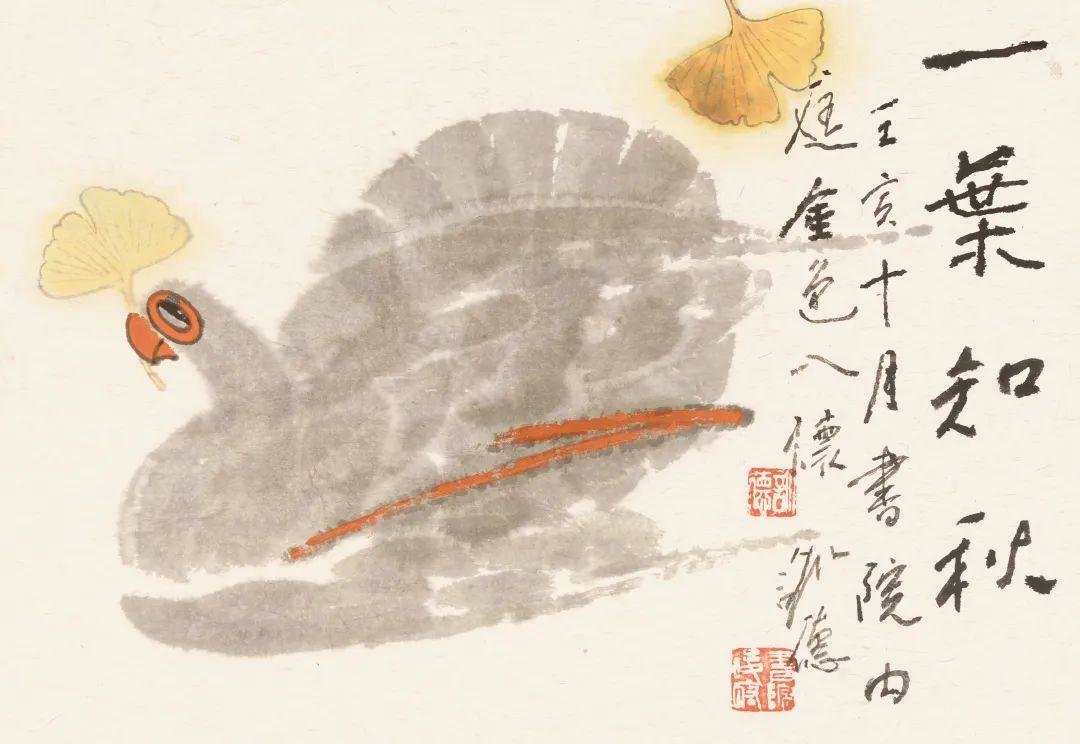 一葉知秋
壬寅十月書院内
庭金色入懷 德